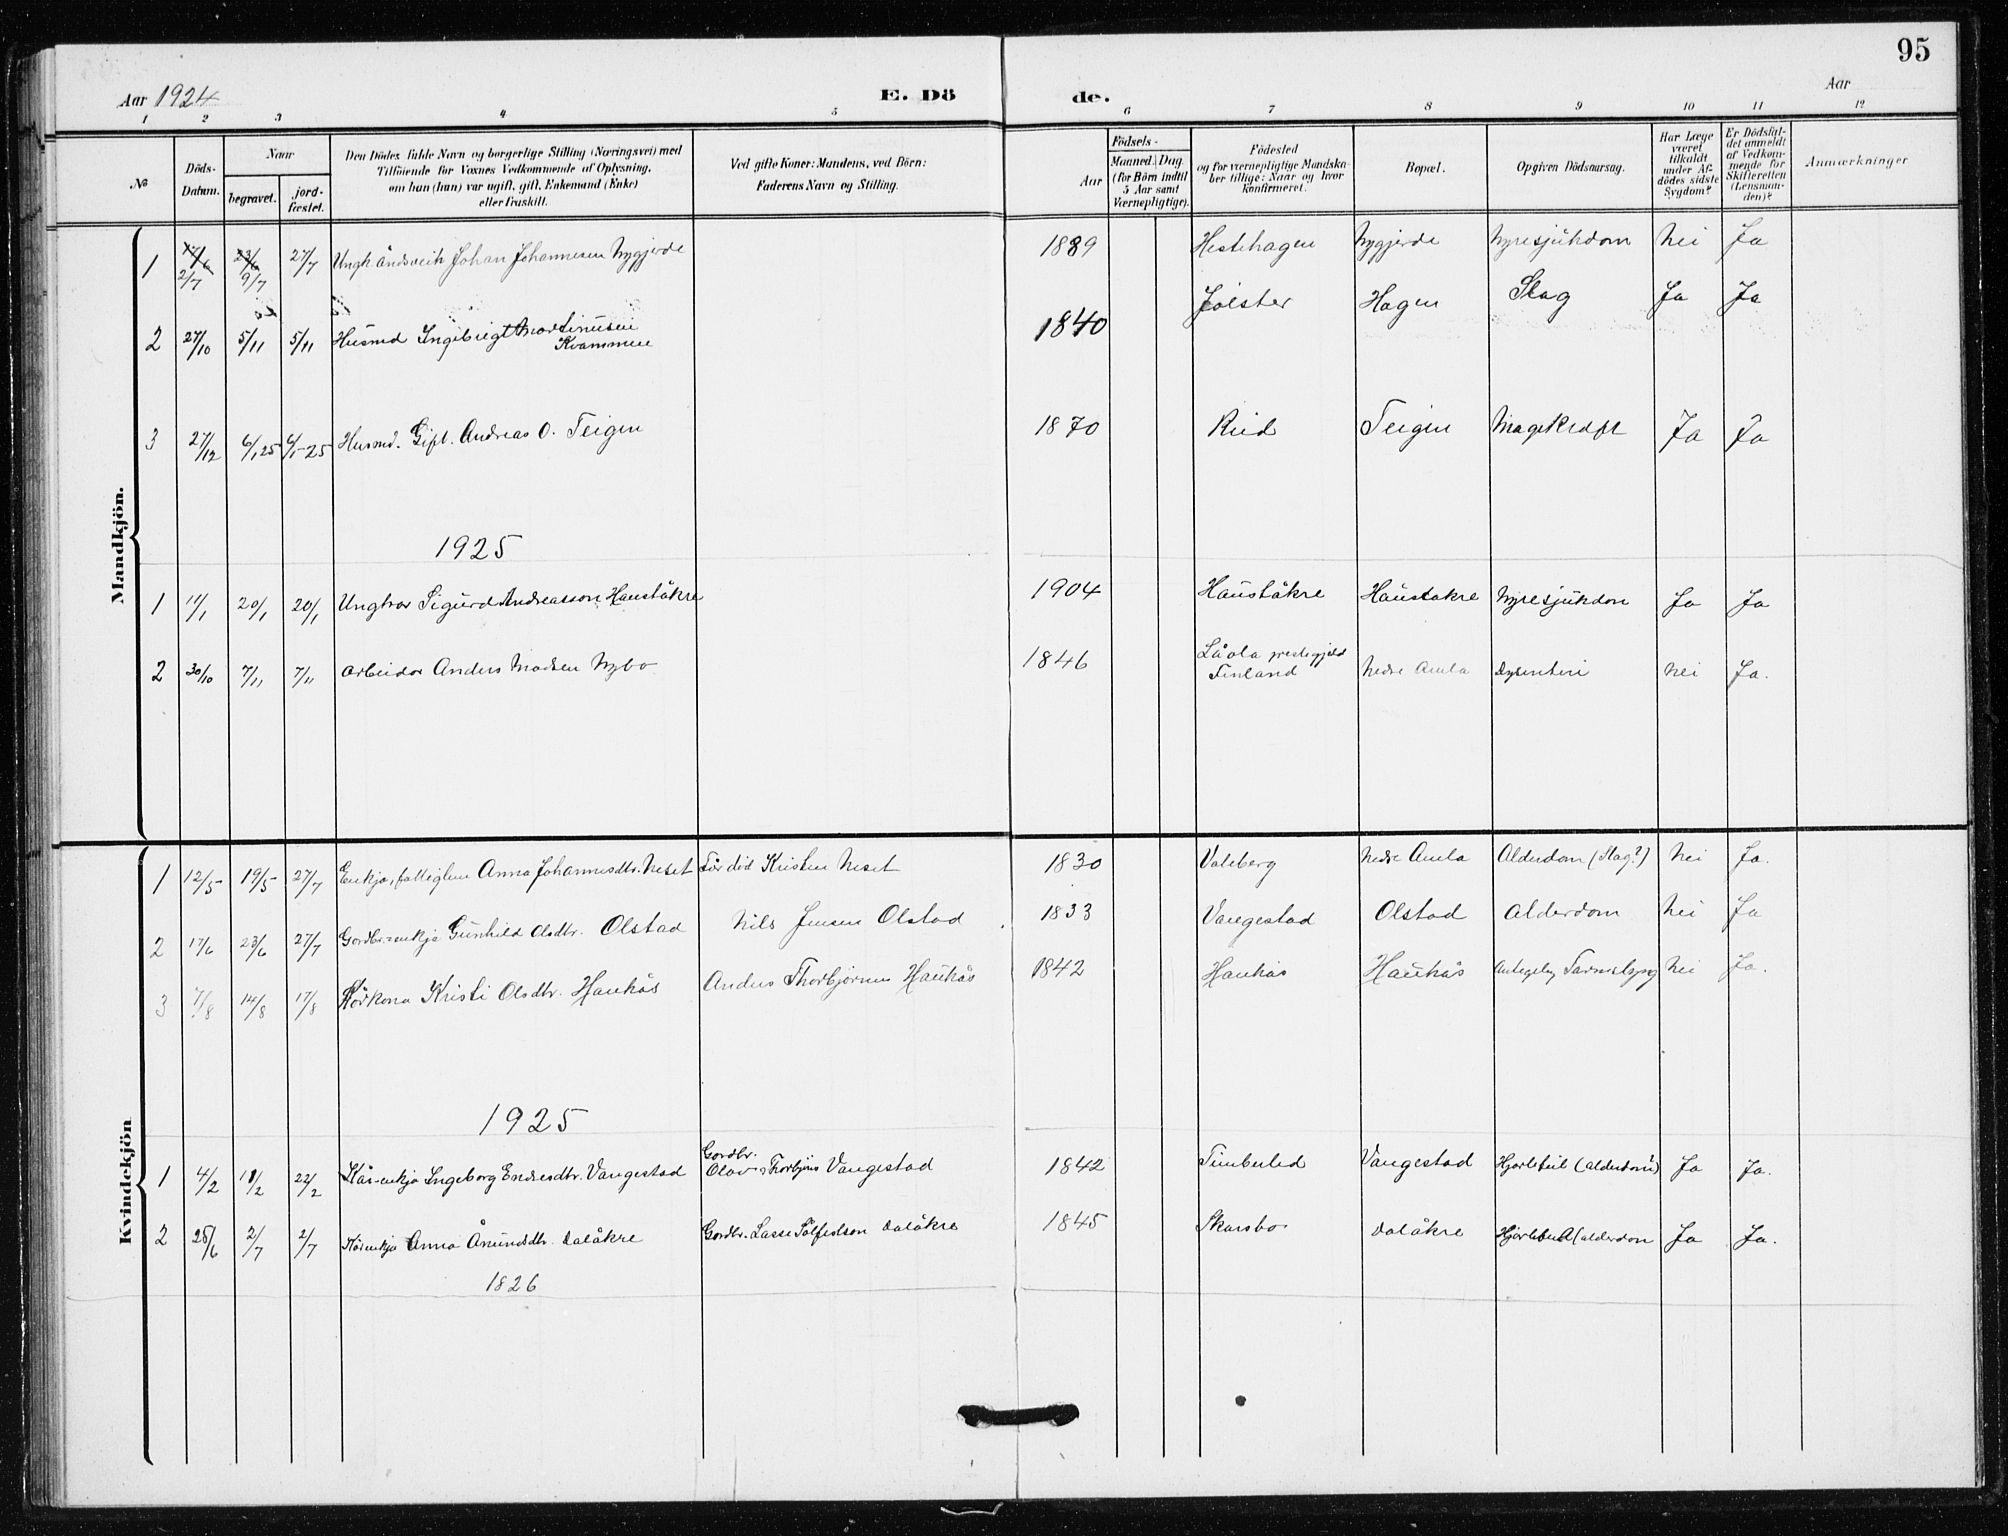 95
Aar 1924 E. Dö de. Aar
1 2 3 4 5 6 7 8 9 10 11 12
No
Döds-
Datum.
Naar
begravet.
jord-
fæstet.
Den Dödes fulde Navn og borgerlige Stilling (Næringsvei) med
Tilföiende for Voxnes Vedkommende af Oplysning,
om han (hun) var ugift, gift, Enkemand (Enke)
eller fraskilt.
Ved gifte Koner: Mandens, ved Börn:
Faderens Navn og Stilling.
Födsels-
Aar
Maaned. Dag
(for Börn indtil
5 Aar samt
Værnepligtige).
Födested
og for værnepligtige Mandska-
ber tillige: Naar og hvor
konfirmeret.
Bopæl.
Opgiven Dödsaarsag.
Har Læge
været
tilkaldt
under Af-
dödes sidste
Sygdom?
Er Dödsfal-
det anmeldt
af Vedkom-
mende for
Skifteretten
(Lensman-
den)?
Anmærkninger
Mandkjön.
1 2/7 9/7 27/7 Ungk. åndsveik Johan Johannesen Nygjerde 1889 Hestehagen Nygjerde Nyresjukdom Nei Ja
2 27/10 5/11 5/11 Husmd Ingebrigt Martinusen
Kvammen 1840 Jølster Hagen Slag Ja Ja
3 27/12 6/1 25 6/1-25 Husmd. Gift. Andreas O. Teigen 1870 Ried Teigen Magekræft Ja Ja
1925
1 11/1 20/1 20/1 Ungkar Sigurd Andreasson Hauståkre 1904 Hauståkre Haustakre Nyresjukdom Ja Ja
2 30/10 7/11 7/11 Arbeidar Anders Madsen Nybo 1846 Låola prestegjeld
Finland Nedre Amla Dysenteri Nei Ja.
Kvindekjön
1 12/5 19/5 27/7 Enkja, fattiglem Anna Johannesdtr. Neset Før død Kristen Neset 1830 Valeberg Nedre Amla Alderdom (Slag?) Nei Ja.
2 17/6 23/6 27/7 Gardbr.-enkja Gunhild Olsdtr. Olstad Nils Jensen Olstad 1833 Vangestad Olstad Alderdom Nei Ja
3 7/8 14/8 17/8 Kårkona Kristi Olsdtr. Haukås Anders Thorbjørnsen Haukås 1842 Haukås Haukås Antageleg Tarmslyng Nei Ja.
1925
1 4/2 11/2 22/2 Kår-enkja Ingeborg Endresdtr. Vangestad Gardbr.
Olav Thorbjøns Vangestad 1842 Timberlid Vangestad Hjartefeil (alderdom) Ja Ja.
2 25/6 2/7 2/7 Kårenkja Anna Ånundsdtr. Dalåkre Gardbr. Lasse Sølfestson Dalåkre 1845 Skarsbo Dalåkre Hjartefeil (alderdom Ja Ja.
1826